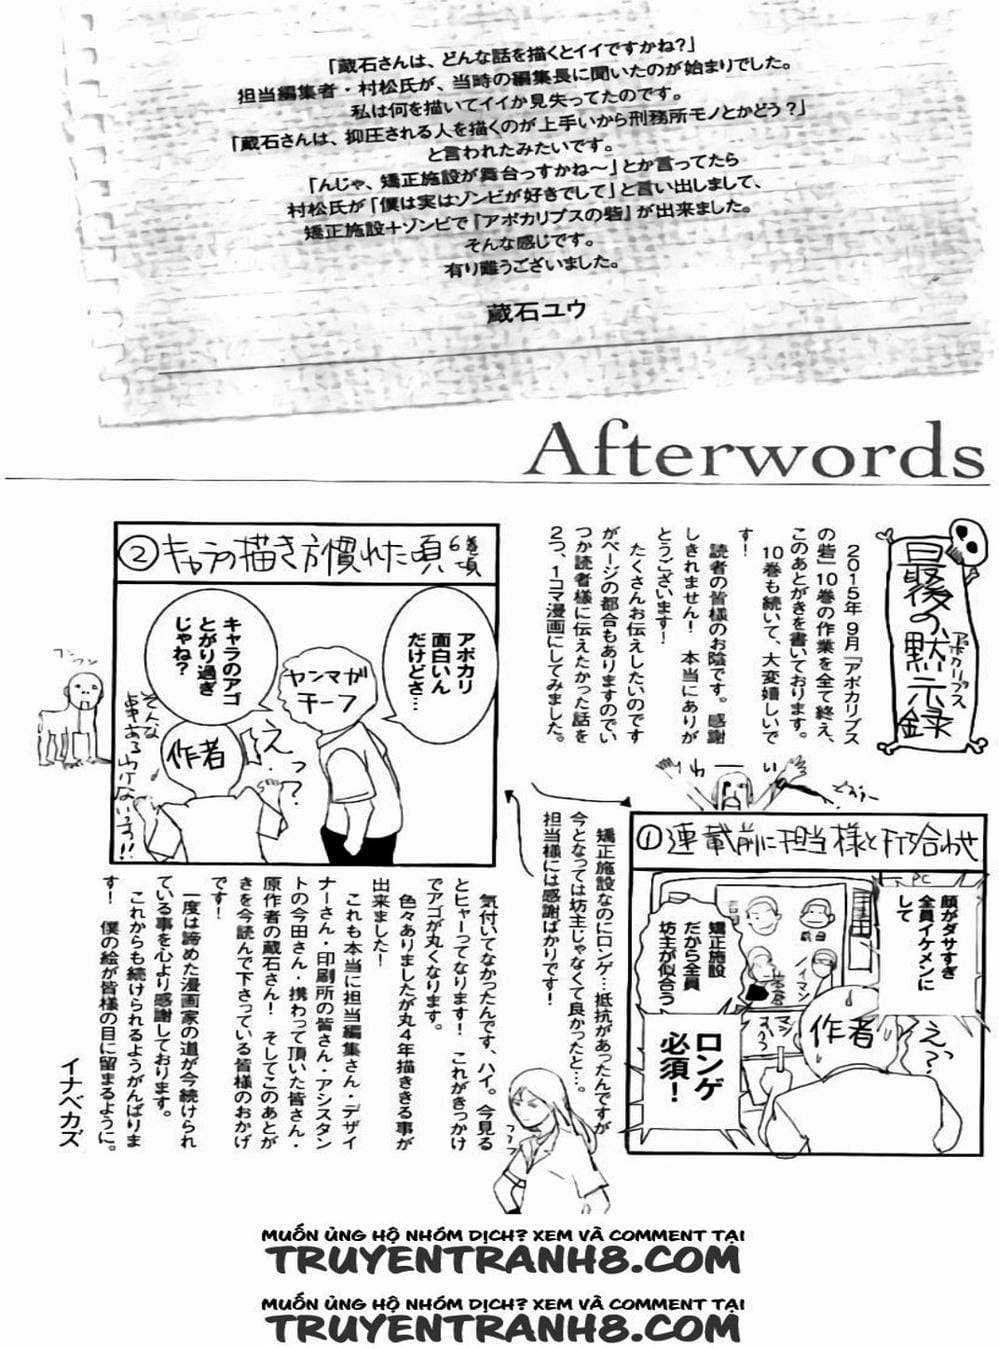 「蔵石さんは、どんな話を描くとイイですかね？」
担当編集者・村松氏が、当時の編集長に聞いたのが始まりでした。
私は何を描いてイイか見失ってたのです。
「蔵石さんは、抑圧される人を描くのが上手いから刑務所モノとかどう？」
と言われたみたいです。
「んじゃ、矯正施設が舞台っすかね～」とか言ってたら
村松氏が「僕は実はゾンビが好きでして」と言い出しまして、
矯正施設＋ゾンビで『アポカリプスの砦』が出来ました。
そんな感じです。
有り難うございました。
蔵石ユウ
Afterwords
最後の黙示録
アポカリプス
２０１５年９月「アポカリプス
の砦」10巻の作業を全て終え、
このあとがきを書いております。
10巻も続いて、大変嬉しいで
す！
読者の皆様のお陰です。感謝
しきれません！　本当にありが
とうございます！
たくさんお伝えしたいのです
がページの都合もありますのでい
つか読者様に伝えたかった話を
２つ、１コマ漫画にしてみました。
わーい
①連載前に担当様と打ち合わせ
顔がダサすぎ
全員イケメンに
して
矯正施設
だから全員
坊主が似合う
ロンゲ
必須！
作者
えっ
前田
ノイマン
矯正施設なのにロンゲ…抵抗があったんですが
今となっては坊主じゃなくて良かったと…。
担当様には感謝ばかりです！
②キャラの描き方慣れた頃
6巻頃
アポカリ
面白いん
だけどさ…
キャラのアゴ
とがり過ぎ
じゃね？
ヤンマガ
チーフ
作者
え…っ？
そんな
事あるわけないっす!!
フンフン
気付いてなかったんです、ハイ。今見る
とヒャーってなります！　これがきっかけ
でアゴが丸くなります。
色々ありましたが丸４年描ききる事が
出来ました！
これも本当に担当編集さん・デザイ
ナーさん・印刷所の皆さん・アシスタン
トの今田さん・携わって頂いた皆さん・
原作者の蔵石さん！　そしてこのあとが
きを今読んで下さっている皆様のおかげ
です！
一度は諦めた漫画家の道が今続けられ
ている事を心より感謝しております。
これからも続けられるようがんばりま
す！　僕の絵が皆様の目に留まるように。
イナベカズ
MUỐN ỦNG HỘ NHÓM DỊCH? XEM VÀ COMMENT TẠI
TRUYENTRANH8.COM
MUỐN ỦNG HỘ NHÓM DỊCH? XEM VÀ COMMENT TẠI
TRUYENTRANH8.COM